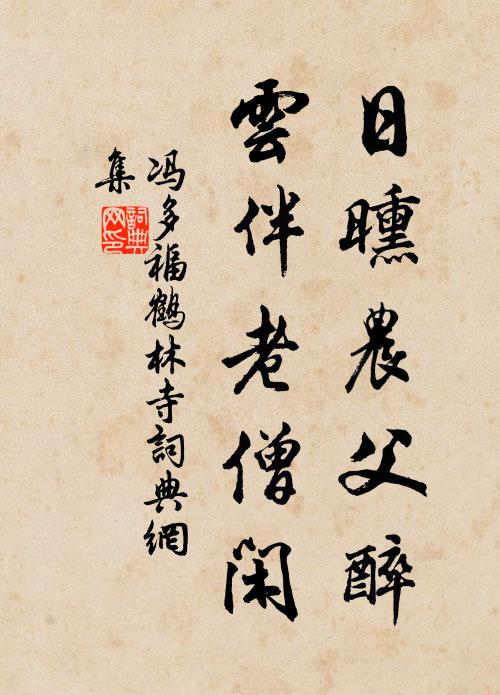 日曛農父醉
雲伴老僧閑
冯多福鶴林寺詞典網
集
詞典網印